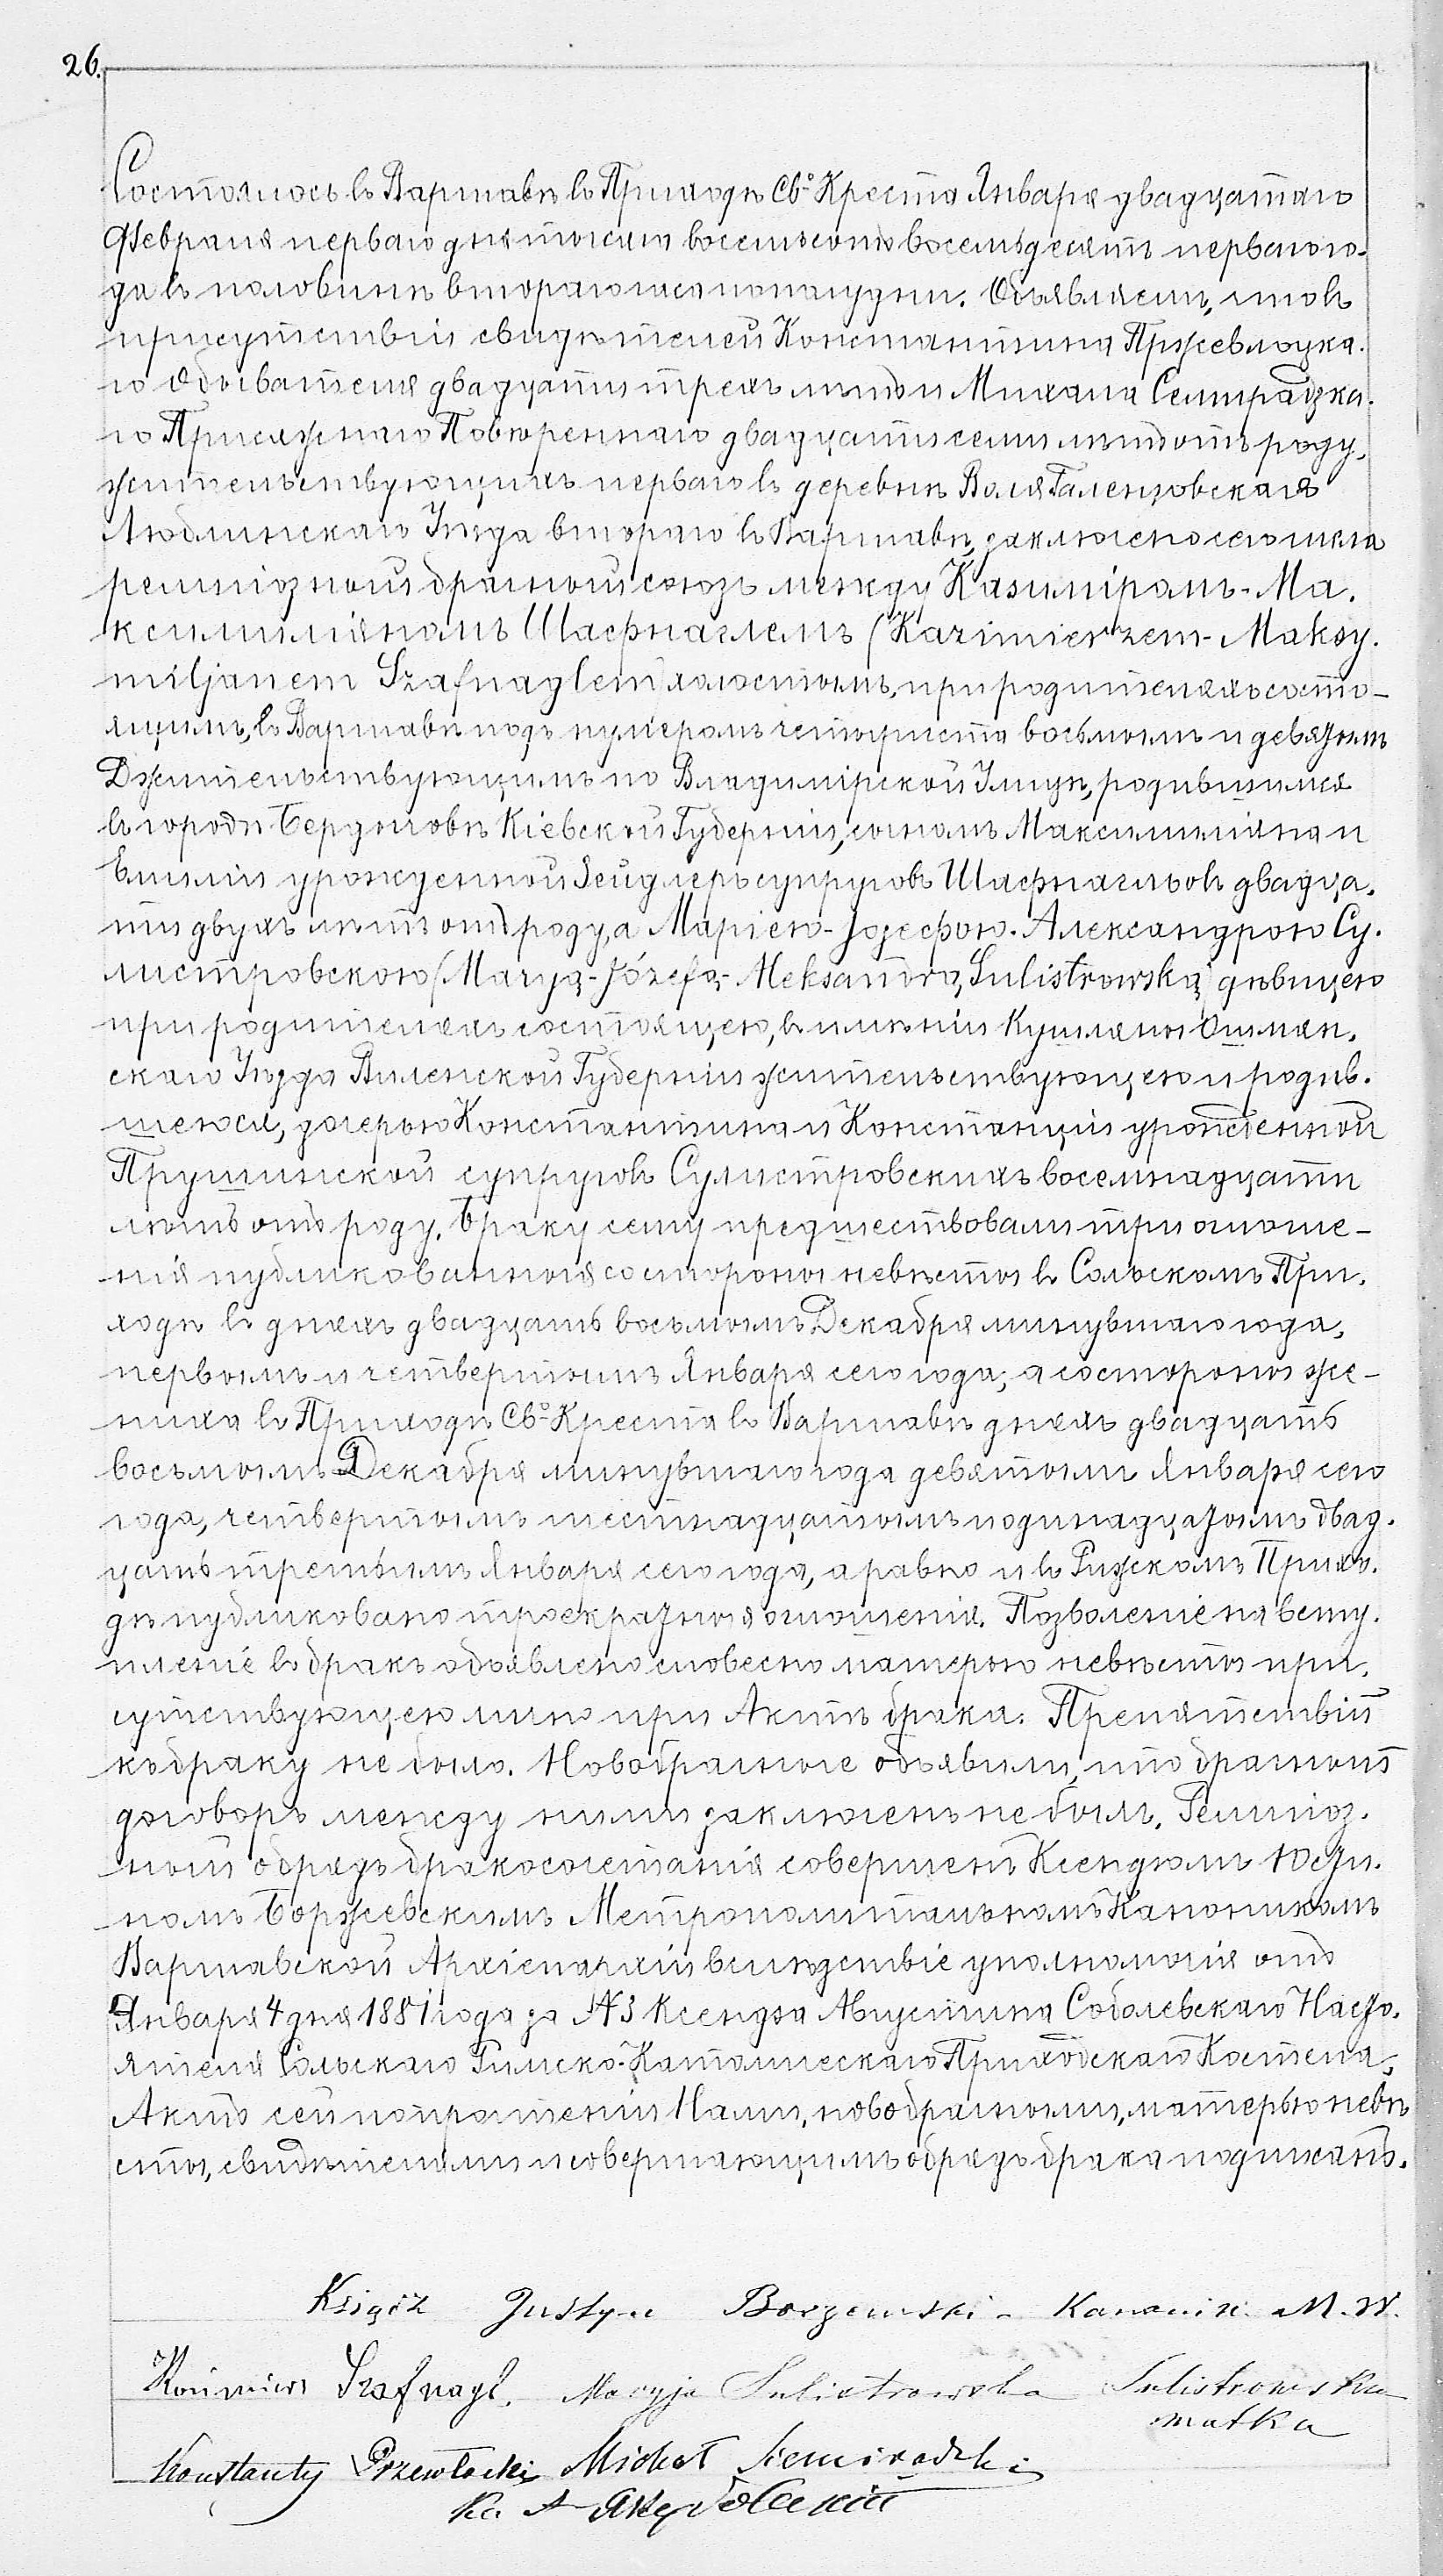 26.
Состоялось въ Варшавѣ въ Приходѣ Свo Креста Января двадцатаго
Февраля перваго дня тысяча восемьсотъ восемьдесятъ перваго го-
да въ половинѣ втораго часа пополудни. Объявляемъ, что въ
присутствіи свидѣтелей Константина Пржевлоцка-
го Обывателя двадцати трехъ лѣтъ и Михала Семирадзка-
го Присяжнаго Повѣреннаго двадцати семи лѣтъ отъ роду,
жительствующихъ перваго въ деревнѣ Воля Галензовская
Люблинскаго Уѣзда втораго въ Варшавѣ, заключено сего числа
религіозный брачный союзъ между Казиміромъ-Ма-
ксимиліяномъ Шафнаглемъ (Kazimierzem-Maksy-
miljanem Szafnaglem) холостымъ, при родителяхъ состо-
ящимъ, въ Варшавѣ подъ нумеромъ четыриста восьмымъ и девятымъ
Д жительствующимъ по Владимірской Улицѣ, родившимся
въ городѣ Бердычовѣ Кіевской Губерніи, сыномъ Максимиліяна и
Емиліи урожденной Зейдлеръ супруговъ Шафнагльовъ двадца-
ти двухъ лѣтъ отъ роду, а Маріею-Јозефою-Александрою Су-
листровскою (Maryą-Józefą-Aleksandrą Sulistrowską) дѣвицею
при родителяхъ состоящею, въ имѣніи Кушляны Ошмян-
скаго Уѣзда Виленской Губерніи жительствующею и родив-
шеюся, дочерью Константина и Констанціи урожденной
Прушинской супруговъ Сулистровскихъ восемнадцати
лѣтъ отъ роду. Браку сему предшествовали три оглоше-
нія публикованныя со стороны невѣсты въ Сольскомъ При-
ходѣ въ дняхъ двадцать восьмымъ Декабря минувшаго года,
первымъ и четвертымъ Января сего года; а со стороны же-
ниха въ Приходѣ Свo Креста въ Варшавѣ дняхъ двадцать
восьмымъ Декабря минувшаго года девятымъ Января сего
года, четвертымъ шестнадцатымъ и одинадцатымъ двад-
цать третьимъ Января сего года, а равно и въ Рижскомъ Прихо-
дѣ публиковано троекратныя оглошенія. Позволеніе на всту-
пленіе въ бракъ объявлено словесно матерью невѣсты при-
сутствующею лично при Актѣ брака. Препятствій
къ браку не было. Новобрачные объявили, что брачный
договоръ между ними заключенъ не былъ. Религіоз-
ный обрядъ бракосочетанія совершенъ Ксендзомъ Юсти-
номъ Боржевскимъ Метрополитальнымъ Каноникомъ
Варшавской Архіепархіи вслѣдствіе уполномочія отъ
Января 4 дня 1881 года за №3 Ксендза Августина Соболевскаго Насто-
ятеля Сольскаго Римско-Католическаго Приходскаго Костела,
Актъ сей по прочтеніи Нами, новобрачными, матерью невѣ
сты, свидѣтелями и совершающимъ обрядъ брака подписанъ.
Ksiądz Justyn Borzewski - Kanonik. M. W.
Kazimierz Szafnagl. Maryja Sulistrowska Sulistrowska
matka
Konstanty Przewłocki Michał Siemiradzki